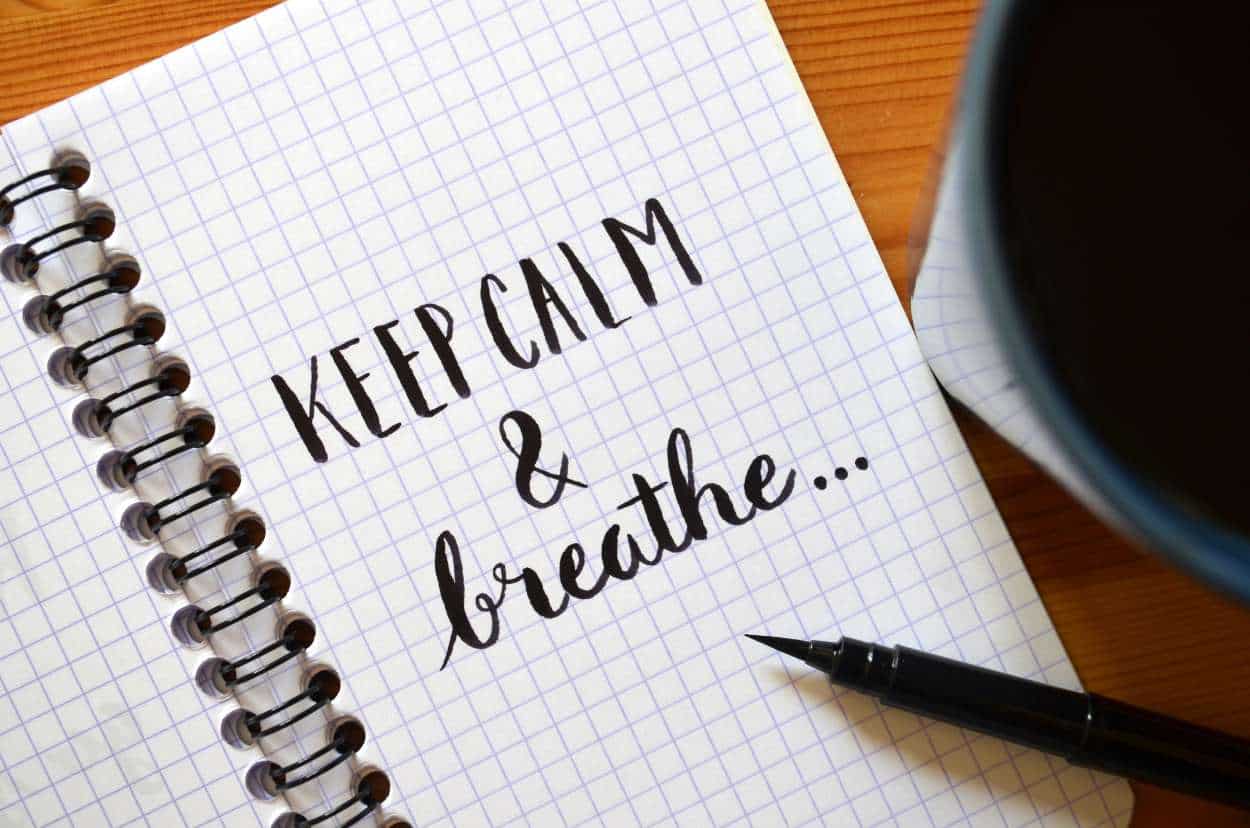 KEEP CALM
&
breathe...